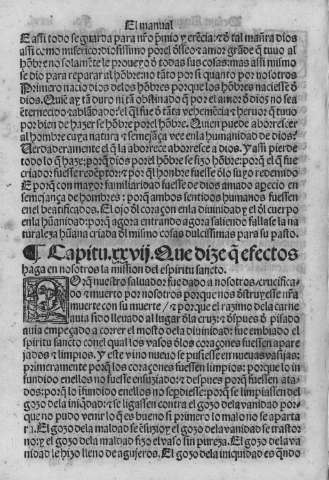 El manual
E assi todo se guarda para nr̃o p̃mio y erẽcia: ⁊ õ tal mañra dios
assi como misericordiosissimo por el õsseo ⁊ amor grãde q̃ tuuo al
hõbre no solamẽte le proueyo õ todas sus cosas: mas assi mismo
se dio para reparar al hõbre: mo tãto por si quanto por nosotros
Primero nacio dios delos hõbres porque los hõbres naciesse õ
dios. Quiẽ ay tã duro ni tã obstinado q̃ por el amor õ dios no sea
eternecido
por bien de hazerse hõbre por el hõbre. Quien puede aborrecer
al hombre cuya natura ⁊ semejãça vee en la humanidad de dios?
Verdaderamente el q̃ la aborrece aborresce a dios. Y assi pierde
todo lo q̃ haze: porq̃ dios por el hõbre se fizo hõbre: porq̃ el q̃ fue
criador fuesse receptor: ⁊ por q̃l hõbre fuesse õlo suyo redemido
E porq̃ con mayor familiaridad fuesse de dios amado apecio en
semejança de hombres: porq̃ ambos sentidos humanos fuessen
en el beatificados. El ojo õl coraçon en la diuinidad y el õl cuerpo
en la hũanidad: porq̃ agora entrando agora saliendo fallasse la na
turaleza hũana criada õl mismo cosas dulcissimas para su pasto.
¶ Capitu. xxvij. Que dize q̃ efectos
haga en nosotros la mission del espiritu sancto.
POrq̃ nuestro saluador fue dado a nosotros / crucifica
do ⁊ muerto por nosotros porque nos õstruyesse nr̃a
muerte con su muerte / ⁊ porque el razimo dela carne
auia sido lleuado al lugar õla cruz: ⁊ õspues õ pisado
auia empeçado a correr el mosto dela diuinidad: fue embiado el
spiritu sancto con el qual los vasos õlos coraçones fuessen apare
jados ⁊ limpios. Y este vino nueuo se pusiesse en nueuas vasijas:
primeramente porq̃ los coraçones fuessen limpios: porque lo in
fundido en ellos no fuesse ensuziado: ⁊ despues porq̃ fuessen ata-
dos: porq̃ lo ĩfundido en ellos no se põiesse: porq̃ se limpiassen del
gozo dela iniqdad: ⁊ se ligassen contra el gozo dela vanidad por-
que no pudo venir lo q̃ es bueno si primero lo malo no se aparta
ra. El gozo dela maldad se ẽsuzio: y el gozo dela vanidad se trastor
no: y el gozo dela maldad fizo el vaso sin pureza. El gozo dela va
nidad le hizo lleno de agujeros. El gozo dela iniquidad es q̃ndo